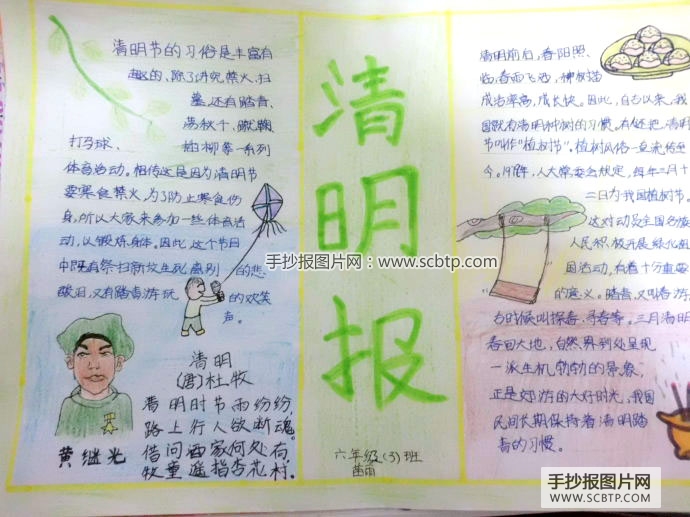 清明节的习俗是丰富有
趣的，除了讲究禁火、扫
墓，还有踏青、
荡秋千、蹴鞠
打马球、插柳等一系列
体育活动。相传这是因为清明节
要寒食禁火，为了防止寒食伤
身，所以大家来参加一些体育活
动，以锻炼身体。因此，这个节日
中既有祭扫新坟生死离别的悲
酸泪，又有踏青游玩的欢笑
声。
清明
(唐)杜牧
清明时节雨纷纷，
路上行人欲断魂。
借问酒家何处有，
牧童遥指杏花村。
黄继光
清明报
六年级(3)班
清明前后，春阳照
临，春雨飞洒，种树苗
成活率高，成长快。因此，自古以来，我
国就有清明种树的习惯。有人还把清明
节叫作“植树节”。植树风俗一直流传至
今。1979年，人大常委会规定，每年三月十
二日为我国植树节。
这对动员全国各族
人民积极开展绿化祖
国活动，有着十分重要
的意义。踏青，又叫春游，
古时候叫探春、寻春等。三月清明
春回大地，自然界到处呈现
一派生机勃勃的景象，
正是郊游的大好时光，我国
民间长期保持着清明踏
青的习惯。
手抄报图片网：www.scbtp.com
手抄报图片网
WWW.SCBTP.COM